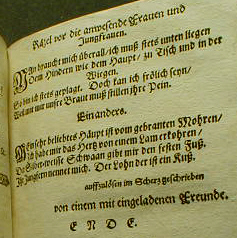 Räzel vor die anwesende Frauen und
Jungfrauen.
Man braucht mich überall, ich muß stets unten liegen
Dem Hindern wie dem Haupt, zu Tisch und in der
Wiegen.
So bin ich stets geplagt. Doch kan ich frölich seyn,
Weil mit mir unsre Braut muß stillen ihre Pein.
Ein anders.
Mein sehr beliebtes Haupt ist vom gebranten Mohren,
Ich habe mir das Hertz von einem Lam erkohren,
Die Silber-weisse Schwaan gibt mir den festen Fuß.
Ihr Jungfern nennet mich. Der Lohn der ist ein Kuß.
auffzulösen im Schertz geschrieben
von einem mit eingeladenen Freunde.
E N D E.